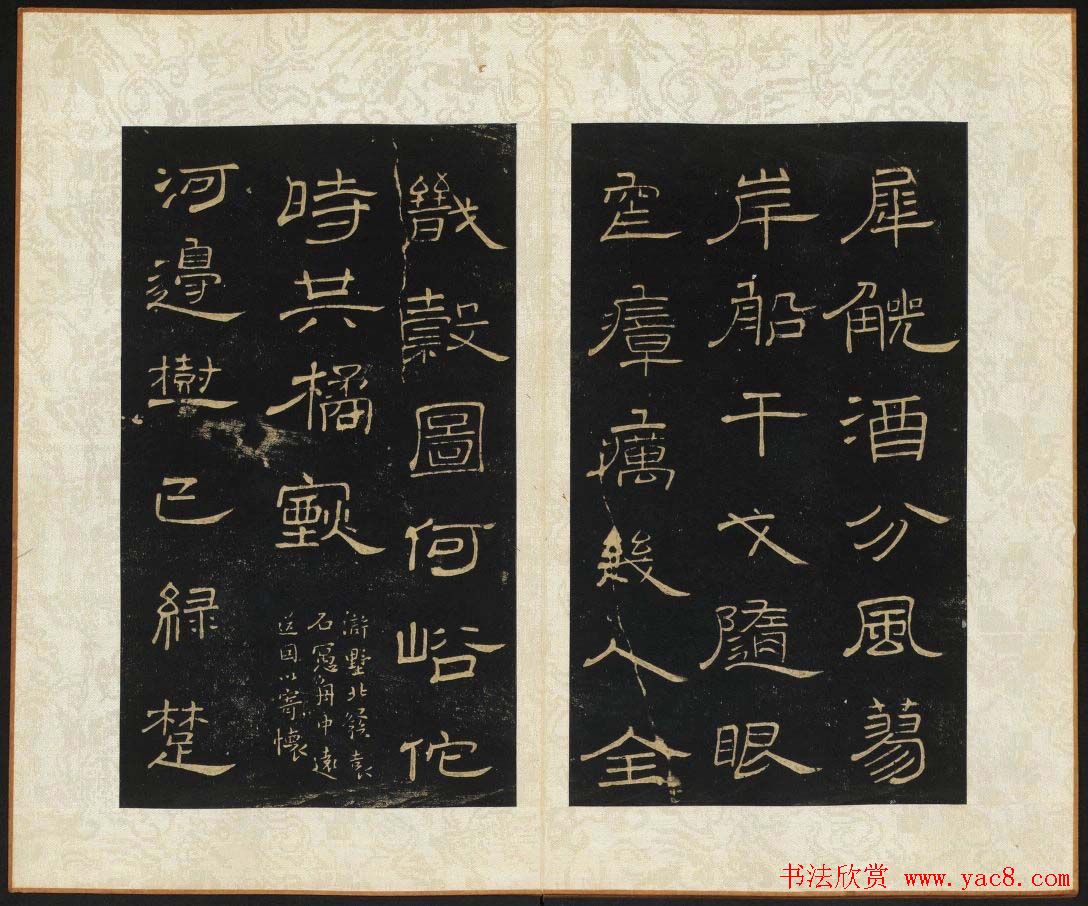 犀觥酒分風蕩
岸船干戈隨眼
定瘴癘幾人全
戩穀圖何峪佗
時共橘
滸墅北發袁
石寓舟中遠
送因以寄懷
河邊樹已綠楚
书法欣赏 www.yac8.com